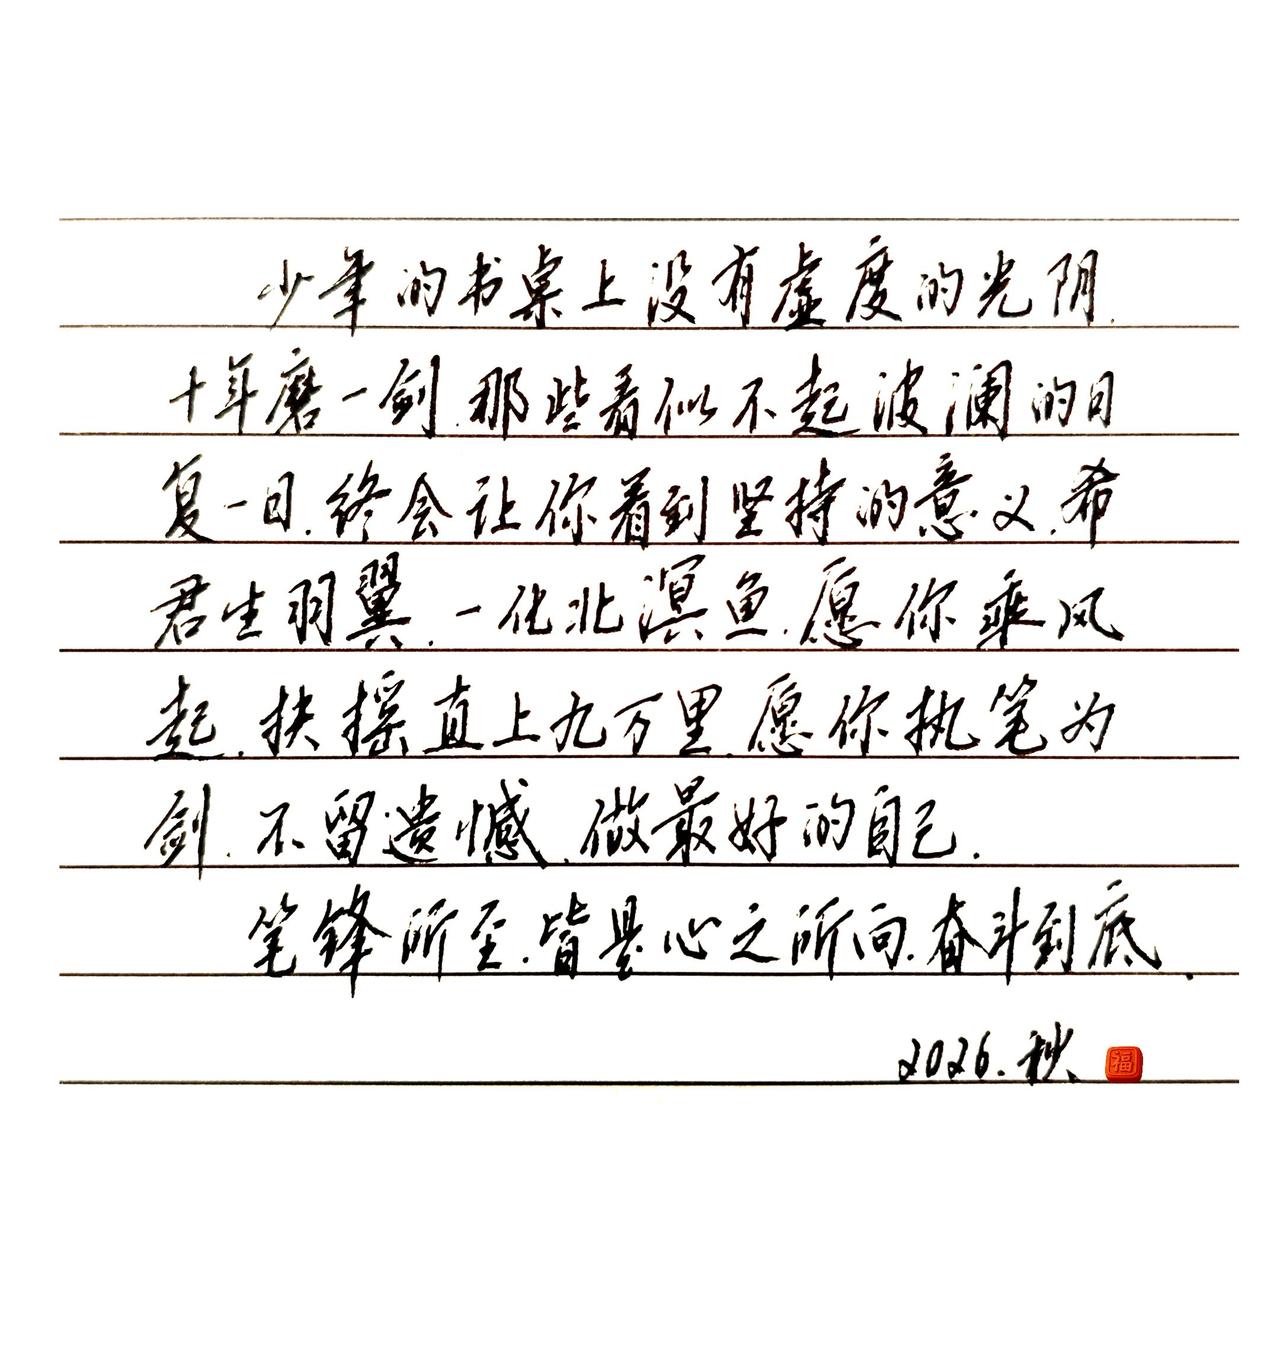 少年的书桌上没有虚度的光阴.
十年磨一剑.那些看似不起波澜的日
复一日.终会让你看到坚持的意义.希
君生羽翼.一化北溟鱼.愿你乘风
起.扶摇直上九万里.愿你执笔为
剑.不留遗憾.做最好的自己.
笔锋所至.皆是心之所向.奋斗到底.
2026.秋 福